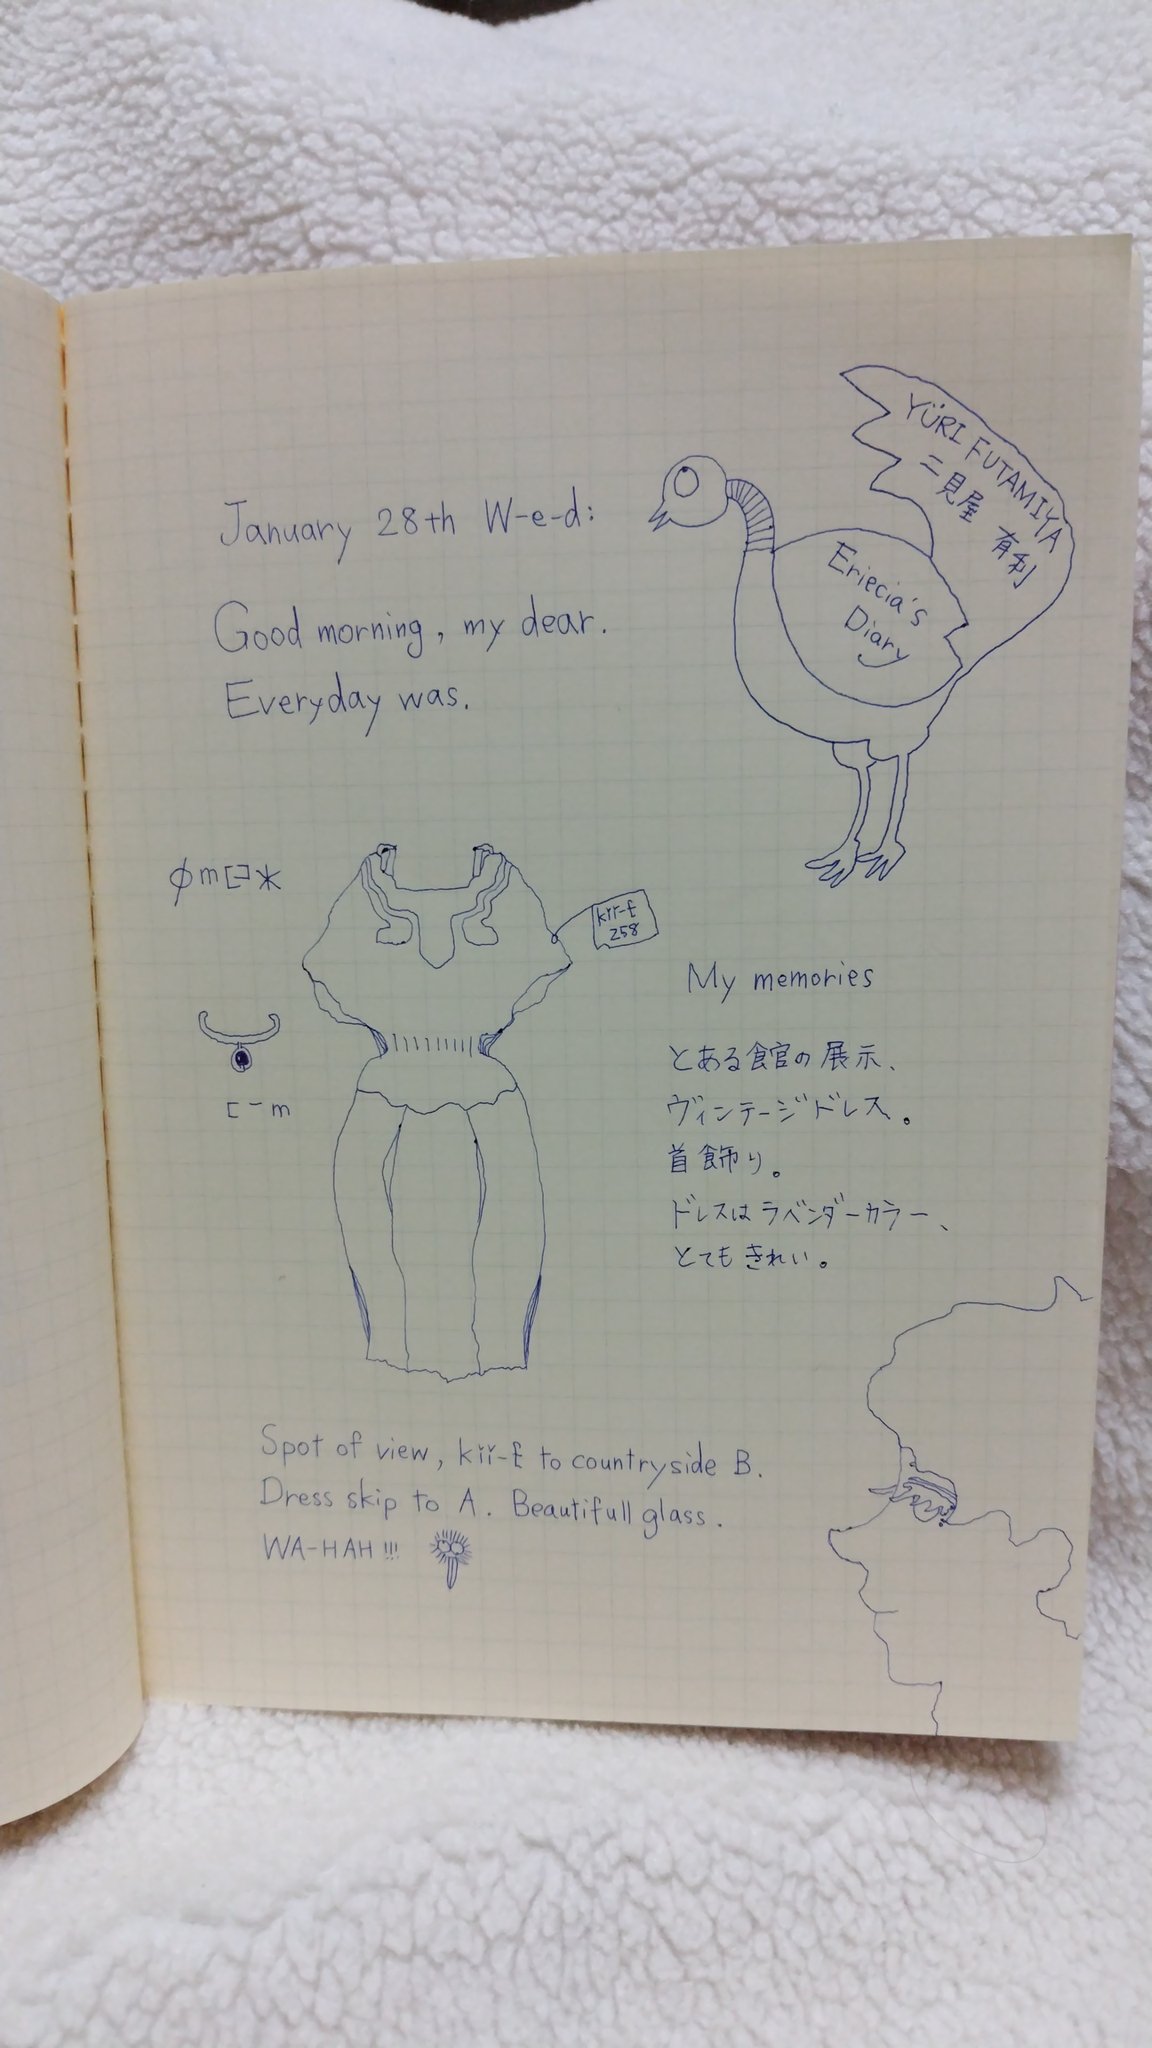 YÜRI FUTAMIYA
二見屋 有利
Eriecia's
Diary
January 28th W-e-d:
Good morning, my dear.
Everyday was.
258
My memories
とある食官の展示、
ヴィンテージドレス。
首飾り。
ドレスはラベンダーカラー、
とてもきれい。
Spot of view, to countryside B.
Dress skip to A. Beautifull glass.
WA-HAH!!!